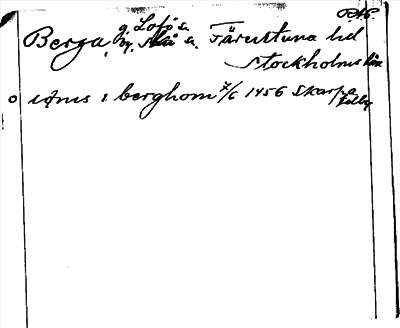 g. Lofö s.
Berga, by, Skå s. Färentuna hd
Stockholms län
o unus i berghom 7/6 1456 Skarpa